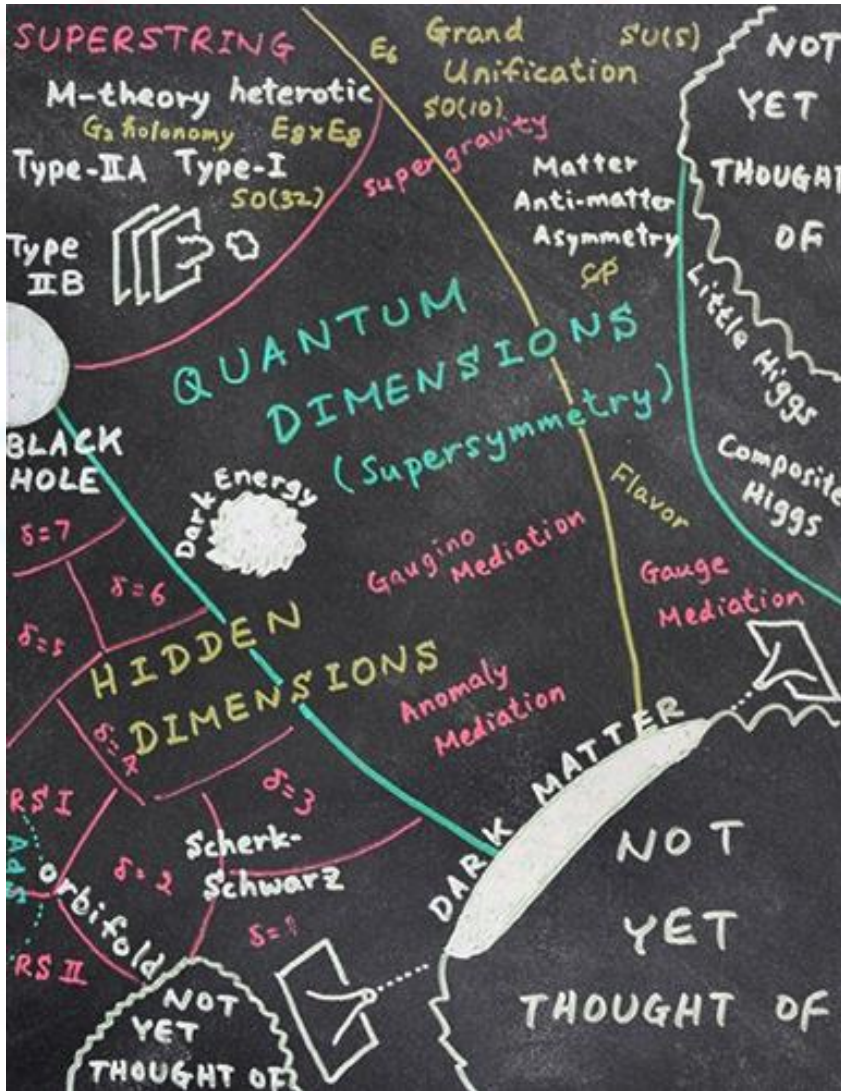 SUPERSTRING
M-theory heterotic
G₂ holonomy E8×E8
Type-IIA Type-I
SO(32)
Type
IIB
E6
Grand
Unification
SU(5)
SO(10)
supergravity
Matter
Anti-matter
Asymmetry
CP
NOT
YET
THOUGHT
OF
Little Higgs
Composite
Higgs
QUANTUM
DIMENSIONS
(Supersymmetry)
BLACK
HOLE
Dark Energy
Flavor
Gaugino
Mediation
Gauge
Mediation
Anomaly
Mediation
δ=7
δ=6
δ=5
HIDDEN
DIMENSIONS
δ=3
RS I
AdS
orbifold
RS II
δ=2
Scherk-
Schwarz
δ=1
DARK MATTER
NOT
YET
THOUGHT OF
NOT
YET
THOUGHT OF